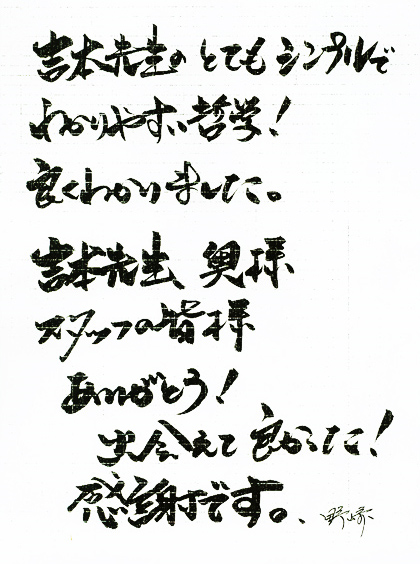 吉本先生の とてもシンプルで
わかりやすい哲学!
良くわかりました。
吉本先生、奥様
スタッフの皆様
ありがとう!
出会えて良かった!
感謝です。、野崎